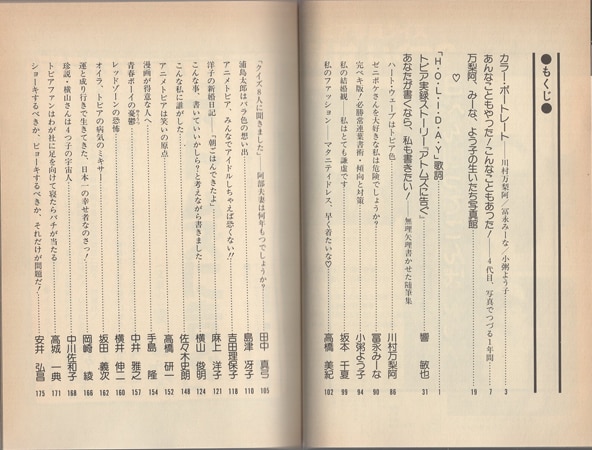 ●もくじ●
カラー・ポートレート……川村万梨阿／冨永みーな／小粥よう子……3
あんなこともやった！こんなこともあった！ 4代目、写真でつづる1年間……7
万梨阿、みーな、よう子の生いたち写真館……19
♡
「H・O・L・I・D・A・Y」歌詞……1
トピア実録ストーリー「アトムズに告ぐ」……響 敏也 31
あなたが書くなら、私も書きたい！ 無理矢理書かせた随筆集
ハート・ウェーブはトピア色……川村万梨阿 86
ゼニポケさんを大好きな私は危険でしょうか？……冨永みーな 90
完ペキ版！必勝常連葉書術・傾向と対策……小粥よう子 94
私の結婚観——私はとても謙虚です……坂本 千夏 99
私のファッション——マタニティドレス、早く着たいな♡……高橋 美紀 102
「クイズ8人に聞きました」阿部夫妻は何年もつでしょうか？……田中 真弓 105
浦島太郎はバラ色の想い出……島津 冴子 110
アニメトピア、みんなでアイドルしちゃえば恐くない!!……吉田理保子 118
洋子の新婚日記――「朝ごはんできたよ」……麻上 洋子 121
こんな事、書いていいかしら？と考えながら書きました……横山 俊明 124
こんな私に誰がした……佐々木史朗 148
アニメトピアは笑いの原点……高橋 研一 152
漫画が得意な人へ……手島 隆 154
青春ボーイの憂鬱……中井 雅之 157
レッドゾーンの恐怖……横井 伸二 161
オイラ、トピアの病気のミキサー……坂田 義次 162
運と成り行きで生きてきた、日本一の幸せ者なのさっ！……岡崎 綾 166
珍説・横山さんは4つ子の宇宙人……中川佐和子 168
トピアファンはわが社に足を向けて寝たらバチが当たる……高城 一典 171
ショーキするべきか、ビョーキするべきか、それだけが問題だ！……安井 弘昌 175